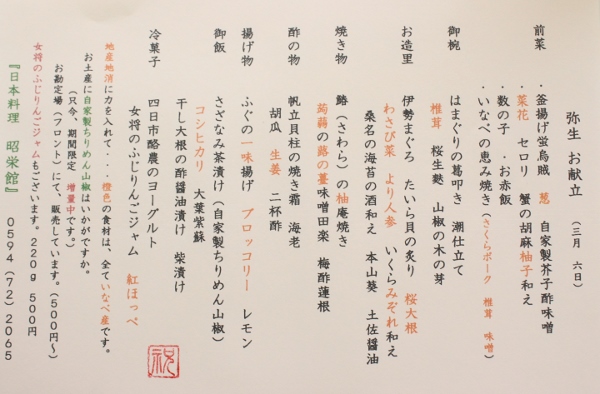 弥生 お献立 (三月 六日)
前菜
・釜揚げ蛍烏賊 葱 自家製芥子酢味噌
・菜花 セロリ 蟹の胡麻柚子和え
・数の子 ・お赤飯
・いなべの恵み焼き(さくらポーク 椎茸 味噌)
御椀
はまぐりの葛叩き 潮仕立て
椎茸 桜生麩 山椒の木の芽
お造里
伊勢まぐろ たいら貝の炙り 桜大根
わさび菜 より人参 いくらみぞれ和え
桑名の海苔の酒和え 本山葵 土佐醤油
焼き物
鰆(さわら)の柚庵焼き
蒟蒻の蕗の薹味噌田楽 梅酢蓮根
酢の物
帆立貝柱の焼き霜 海老
胡瓜 生姜 二杯酢
揚げ物
ふぐの一味揚げ ブロッコリー レモン
御飯
さざなみ茶漬け(自家製ちりめん山椒)
コシヒカリ 大葉紫蘇
干し大根の酢醤油漬け 柴漬け
冷菓子
四日市酪農のヨーグルト
女将のふじりんごジャム 紅ほっぺ
地産地消に力を入れて・・・橙色の食材は、全ていなべ産です。
お土産に自家製ちりめん山椒はいかがですか。
(只今、期間限定 増量中です。)
お勘定場(フロント)にて、販売しています。(500円~)
女将のふじりんごジャムもございます。220g 500円
『日本料理 昭栄館』 0594(72)2065
祝